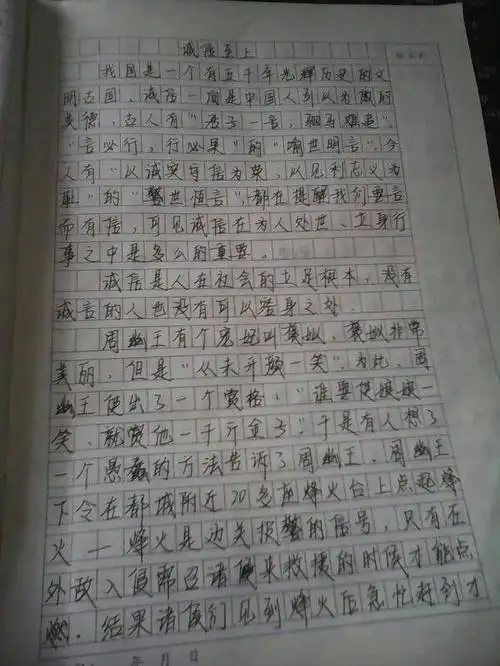 诚信至上
我国是一个有五千年光辉历史的文
明古国，诚信一直是中国人引以为傲的
美德，古人有“君子一言，驷马难追”
“言必行，行必果”的“喻世明言”，今
人有“以诚实守信为荣，以见利忘义为
耻”的“警世恒言”，都在提醒我们要言
而有信，可见诚信在为人处世、立身行
事之中是多么的重要。
诚信是人在社会的立足根本，没有
诚言的人也没有可以容身之处
周幽王有个宠妃叫褒姒，褒姒非常
美丽，但是“从未开颜一笑”。为此，周
幽王便出了一个赏格：“谁要使娘娘一
笑，就赏他一千斤金子”于是有人想了
一个愚蠢的方法告诉了周幽王，周幽王
下令在都城附近20多座烽火台上点起烽
火一烽火是边关报警的信号，只有在
外敌入侵即召诸侯来救援的时候才能点
燃。结果诸侯们见到烽火后急忙赶到才
年 月 日